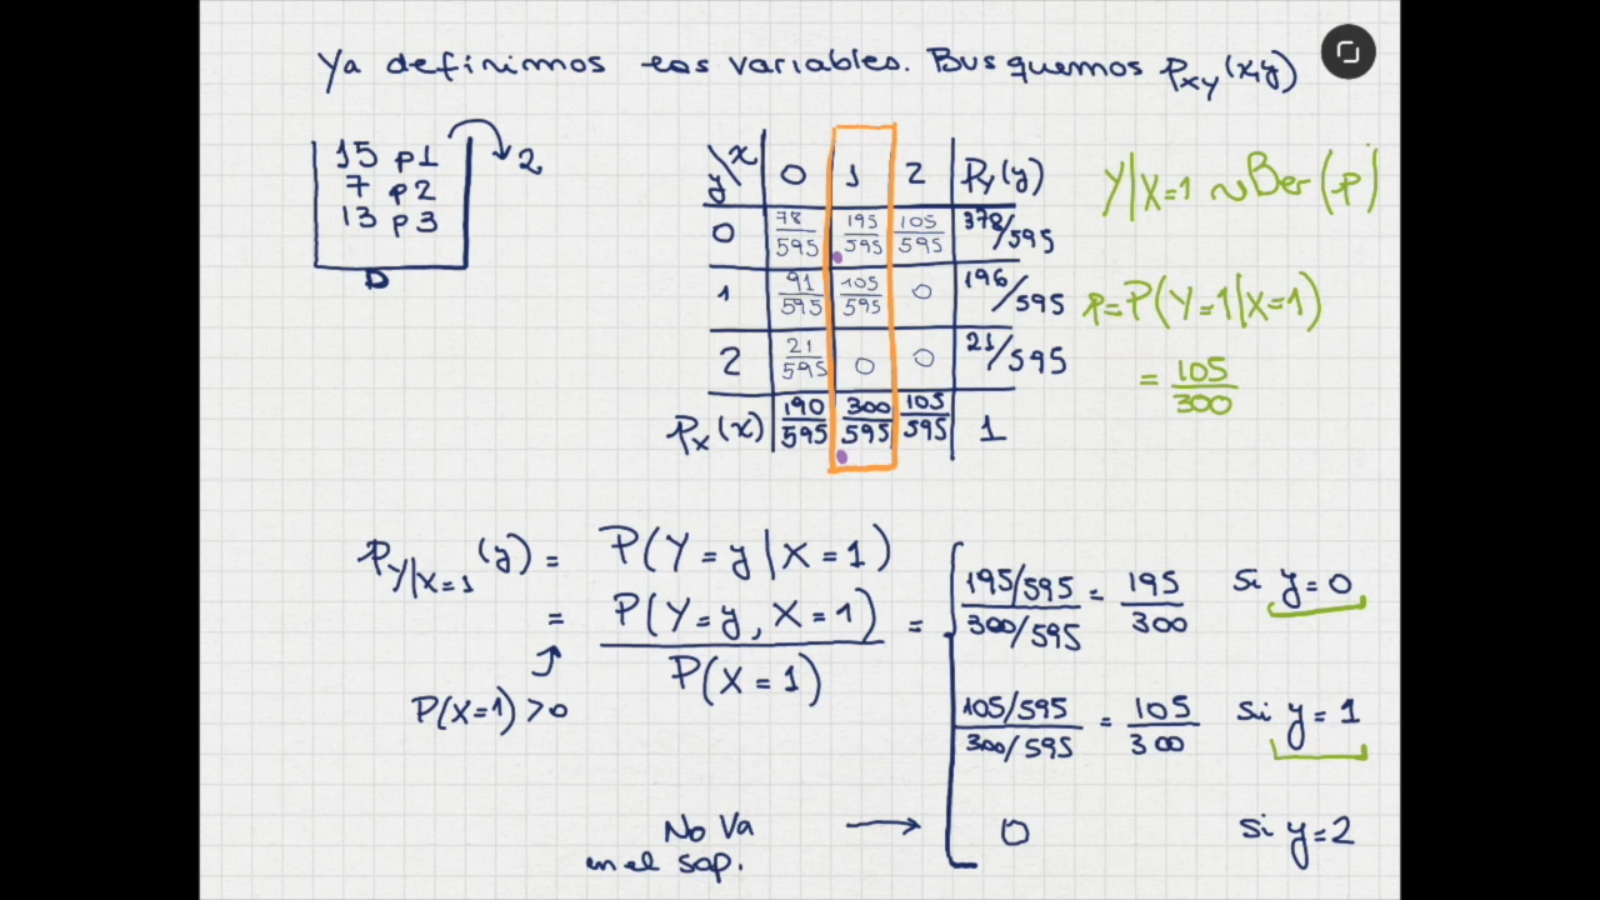 Ya definimos las variables. Busquemos P_XY(x,y)
15 p1
7 p2
13 p3
D
2
y\x 0 1 2 P_Y(y)
0 78/595 195/595 105/595 378/595
1 91/595 105/595 0 196/595
2 21/595 0 0 21/595
P_X(x) 190/595 300/595 105/595 1
Y|X=1 ~ Ber(p)
p=P(Y=1|X=1)
= 105/300
P_Y|X=1 (y) = P(Y=y|X=1)
= P(Y=y, X=1) / P(X=1) =
P(X=1)>0
195/595 / 300/595 = 195/300 si y=0
105/595 / 300/595 = 105/300 si y=1
No va en el sop. → 0 si y=2